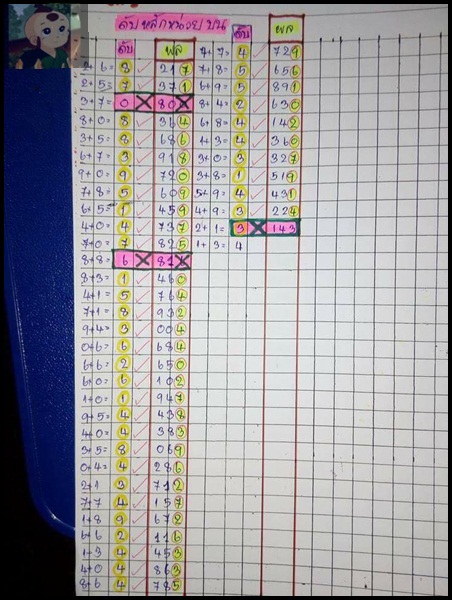 ดับหลักหน่วย บน
ดับ ผล
2+6= 8 217
2+5= 7 371
3+7= 0 X 80X
8+0= 8 364
3+5= 8 686
6+7= 3 918
9+0= 9 720
7+8= 5 609
6+5= 1 459
4+0= 4 737
7+0= 7 825
8+8= 6 X 81X
8+3= 1 460
4+1= 5 764
7+1= 8 932
9+4= 3 004
0+6= 6 684
6+6= 2 650
6+0= 6 102
1+0= 1 947
9+5= 4 438
4+0= 4 383
3+5= 8 069
0+4= 4 286
2+1 3 712
7+7 4 157
1+8 9 672
6+6 2 116
1+3 4 453
4+0 4 863
8+6 4 785
ดับ ผล
7+7= 4 729
7+8= 5 656
6+9= 5 891
8+4= 2 630
6+8= 4 142
1+3= 4 360
3+0= 3 327
3+8= 1 519
5+9= 4 431
4+9= 3 224
2+1= 3 X 143
1+3= 4